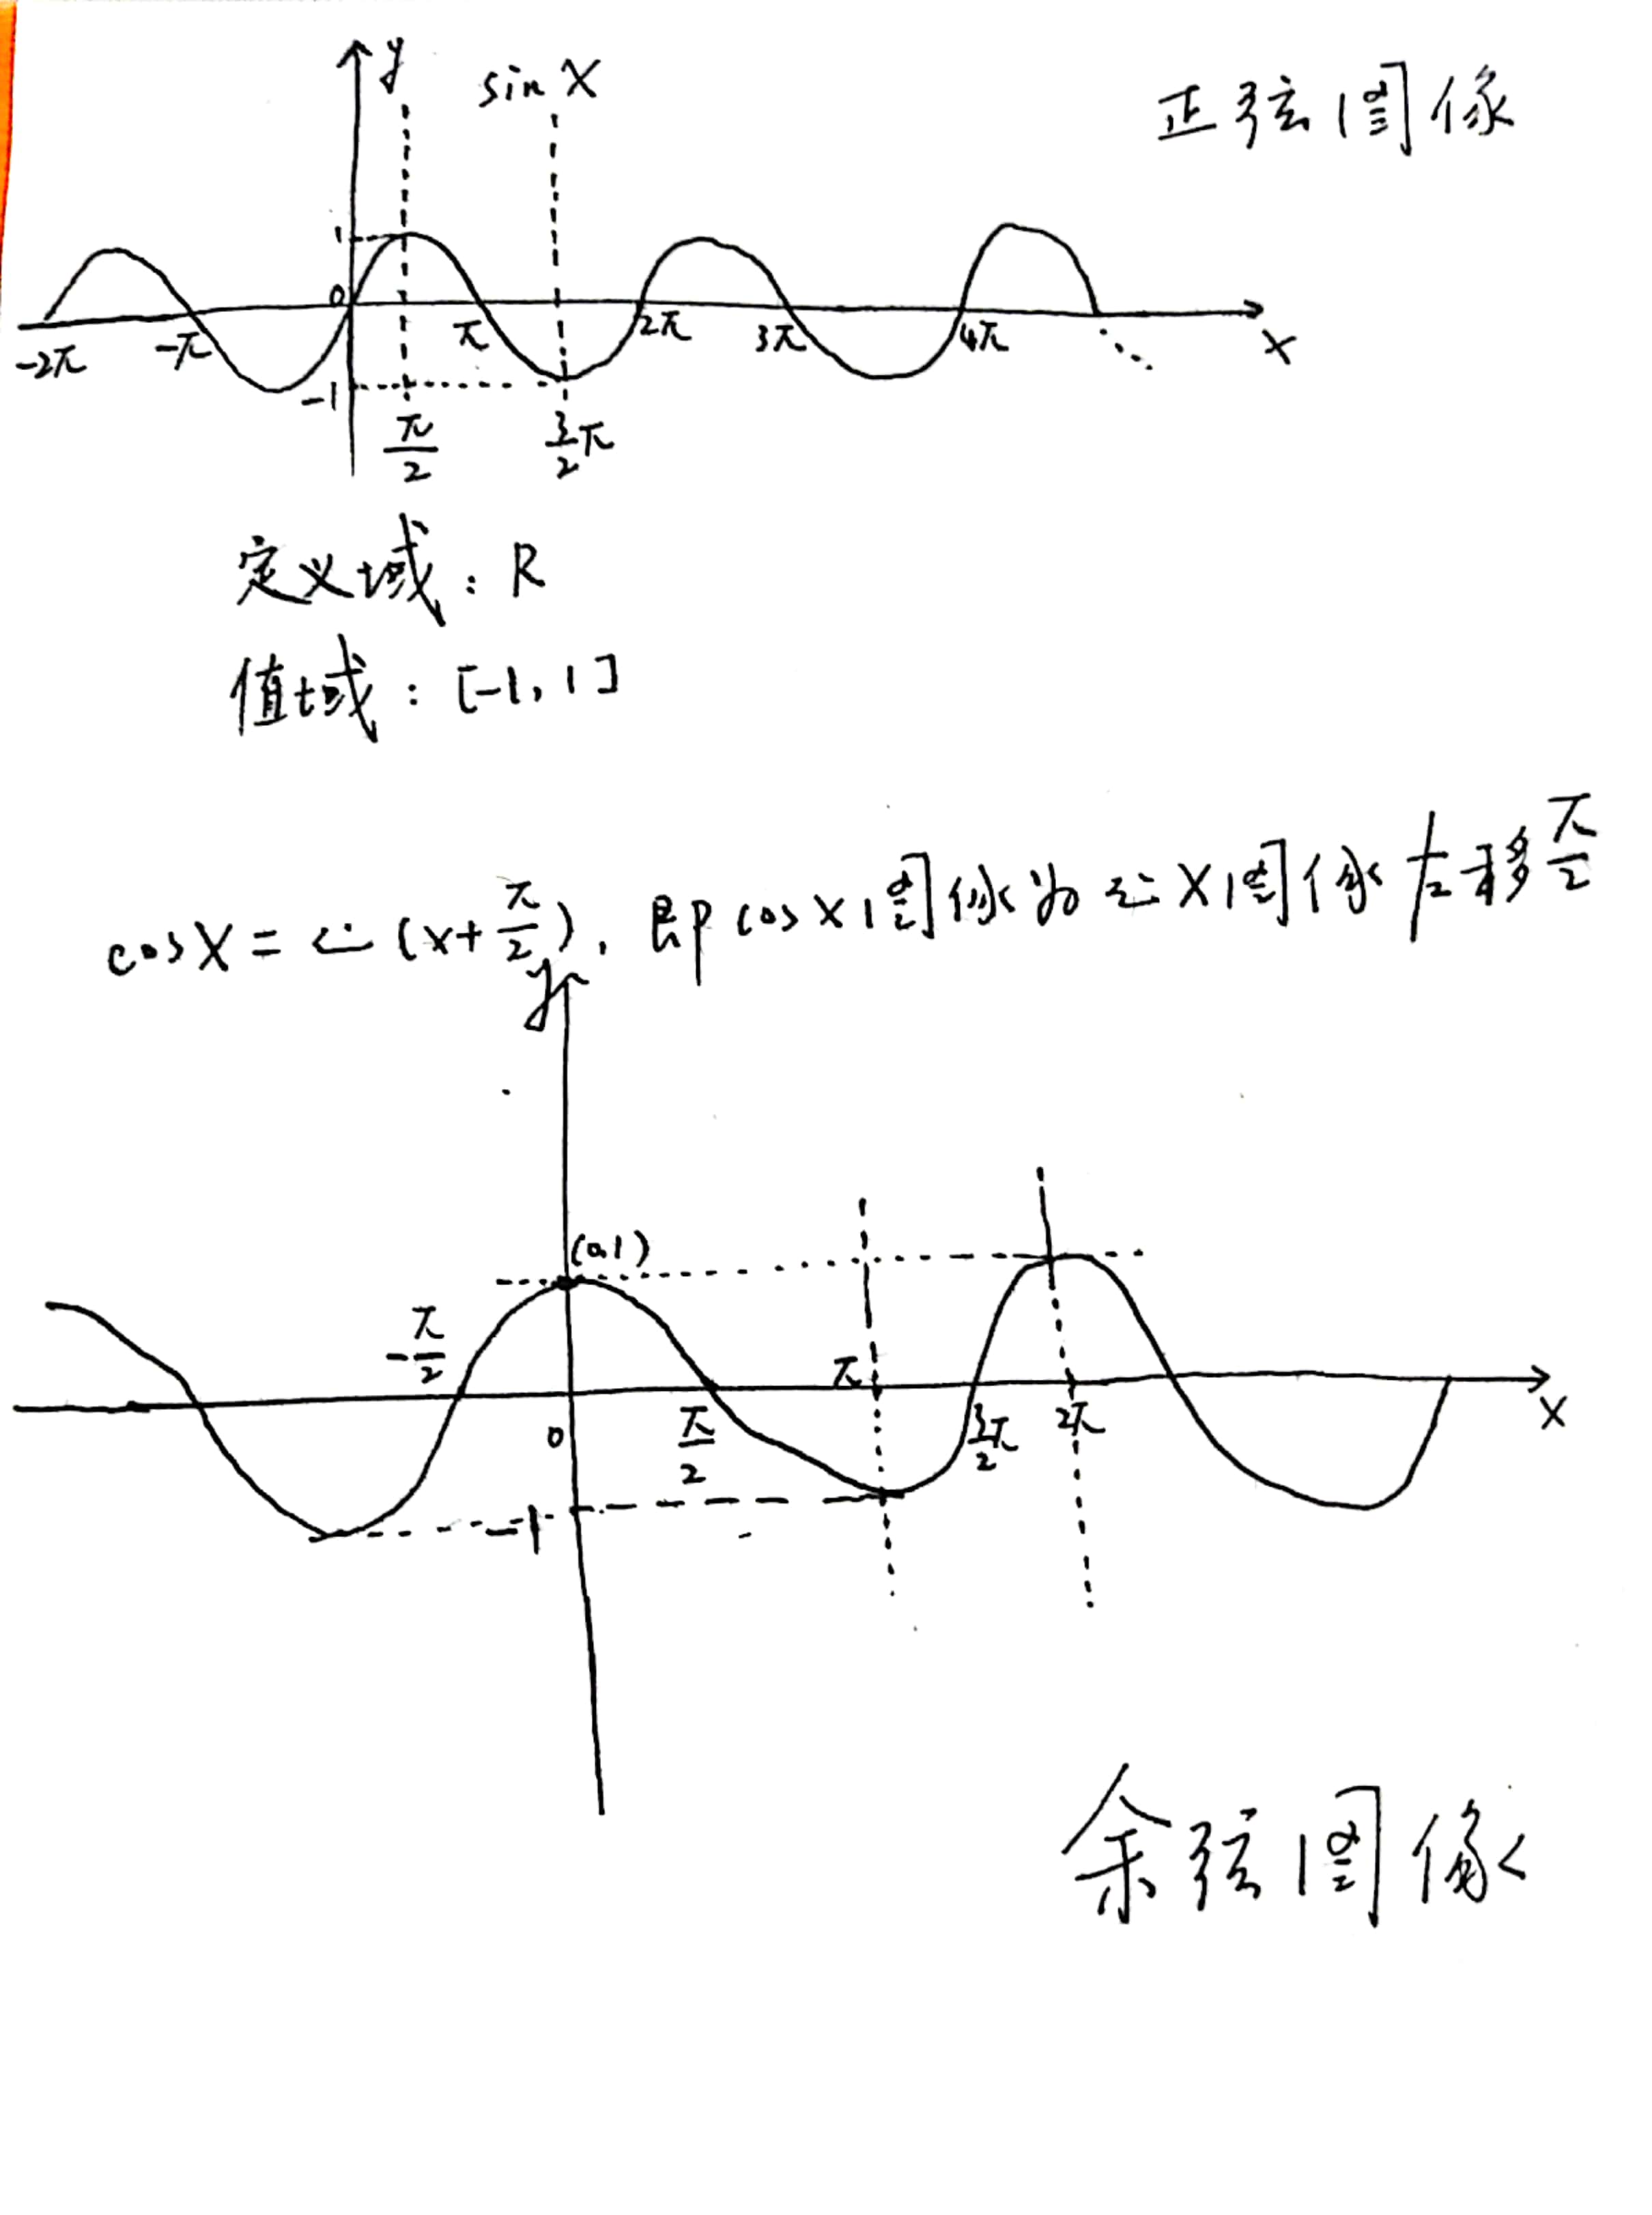 y
sin x
正弦图像
1
0
-2π -π π 2π 3π 4π x
-1
π/2 3/2π
定义域：R
值域：[-1, 1]
cosx = sin (x+π/2), 即cosx图像为sinx图像左移π/2
y
(0,1)
-π/2 π
0 π/2 3/2π 2π x
-1
余弦图像